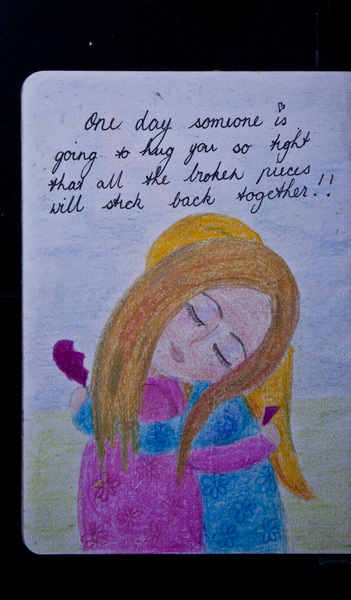 One day someone is
going to hug you so tight
that all the broken pieces
will stick back together!!